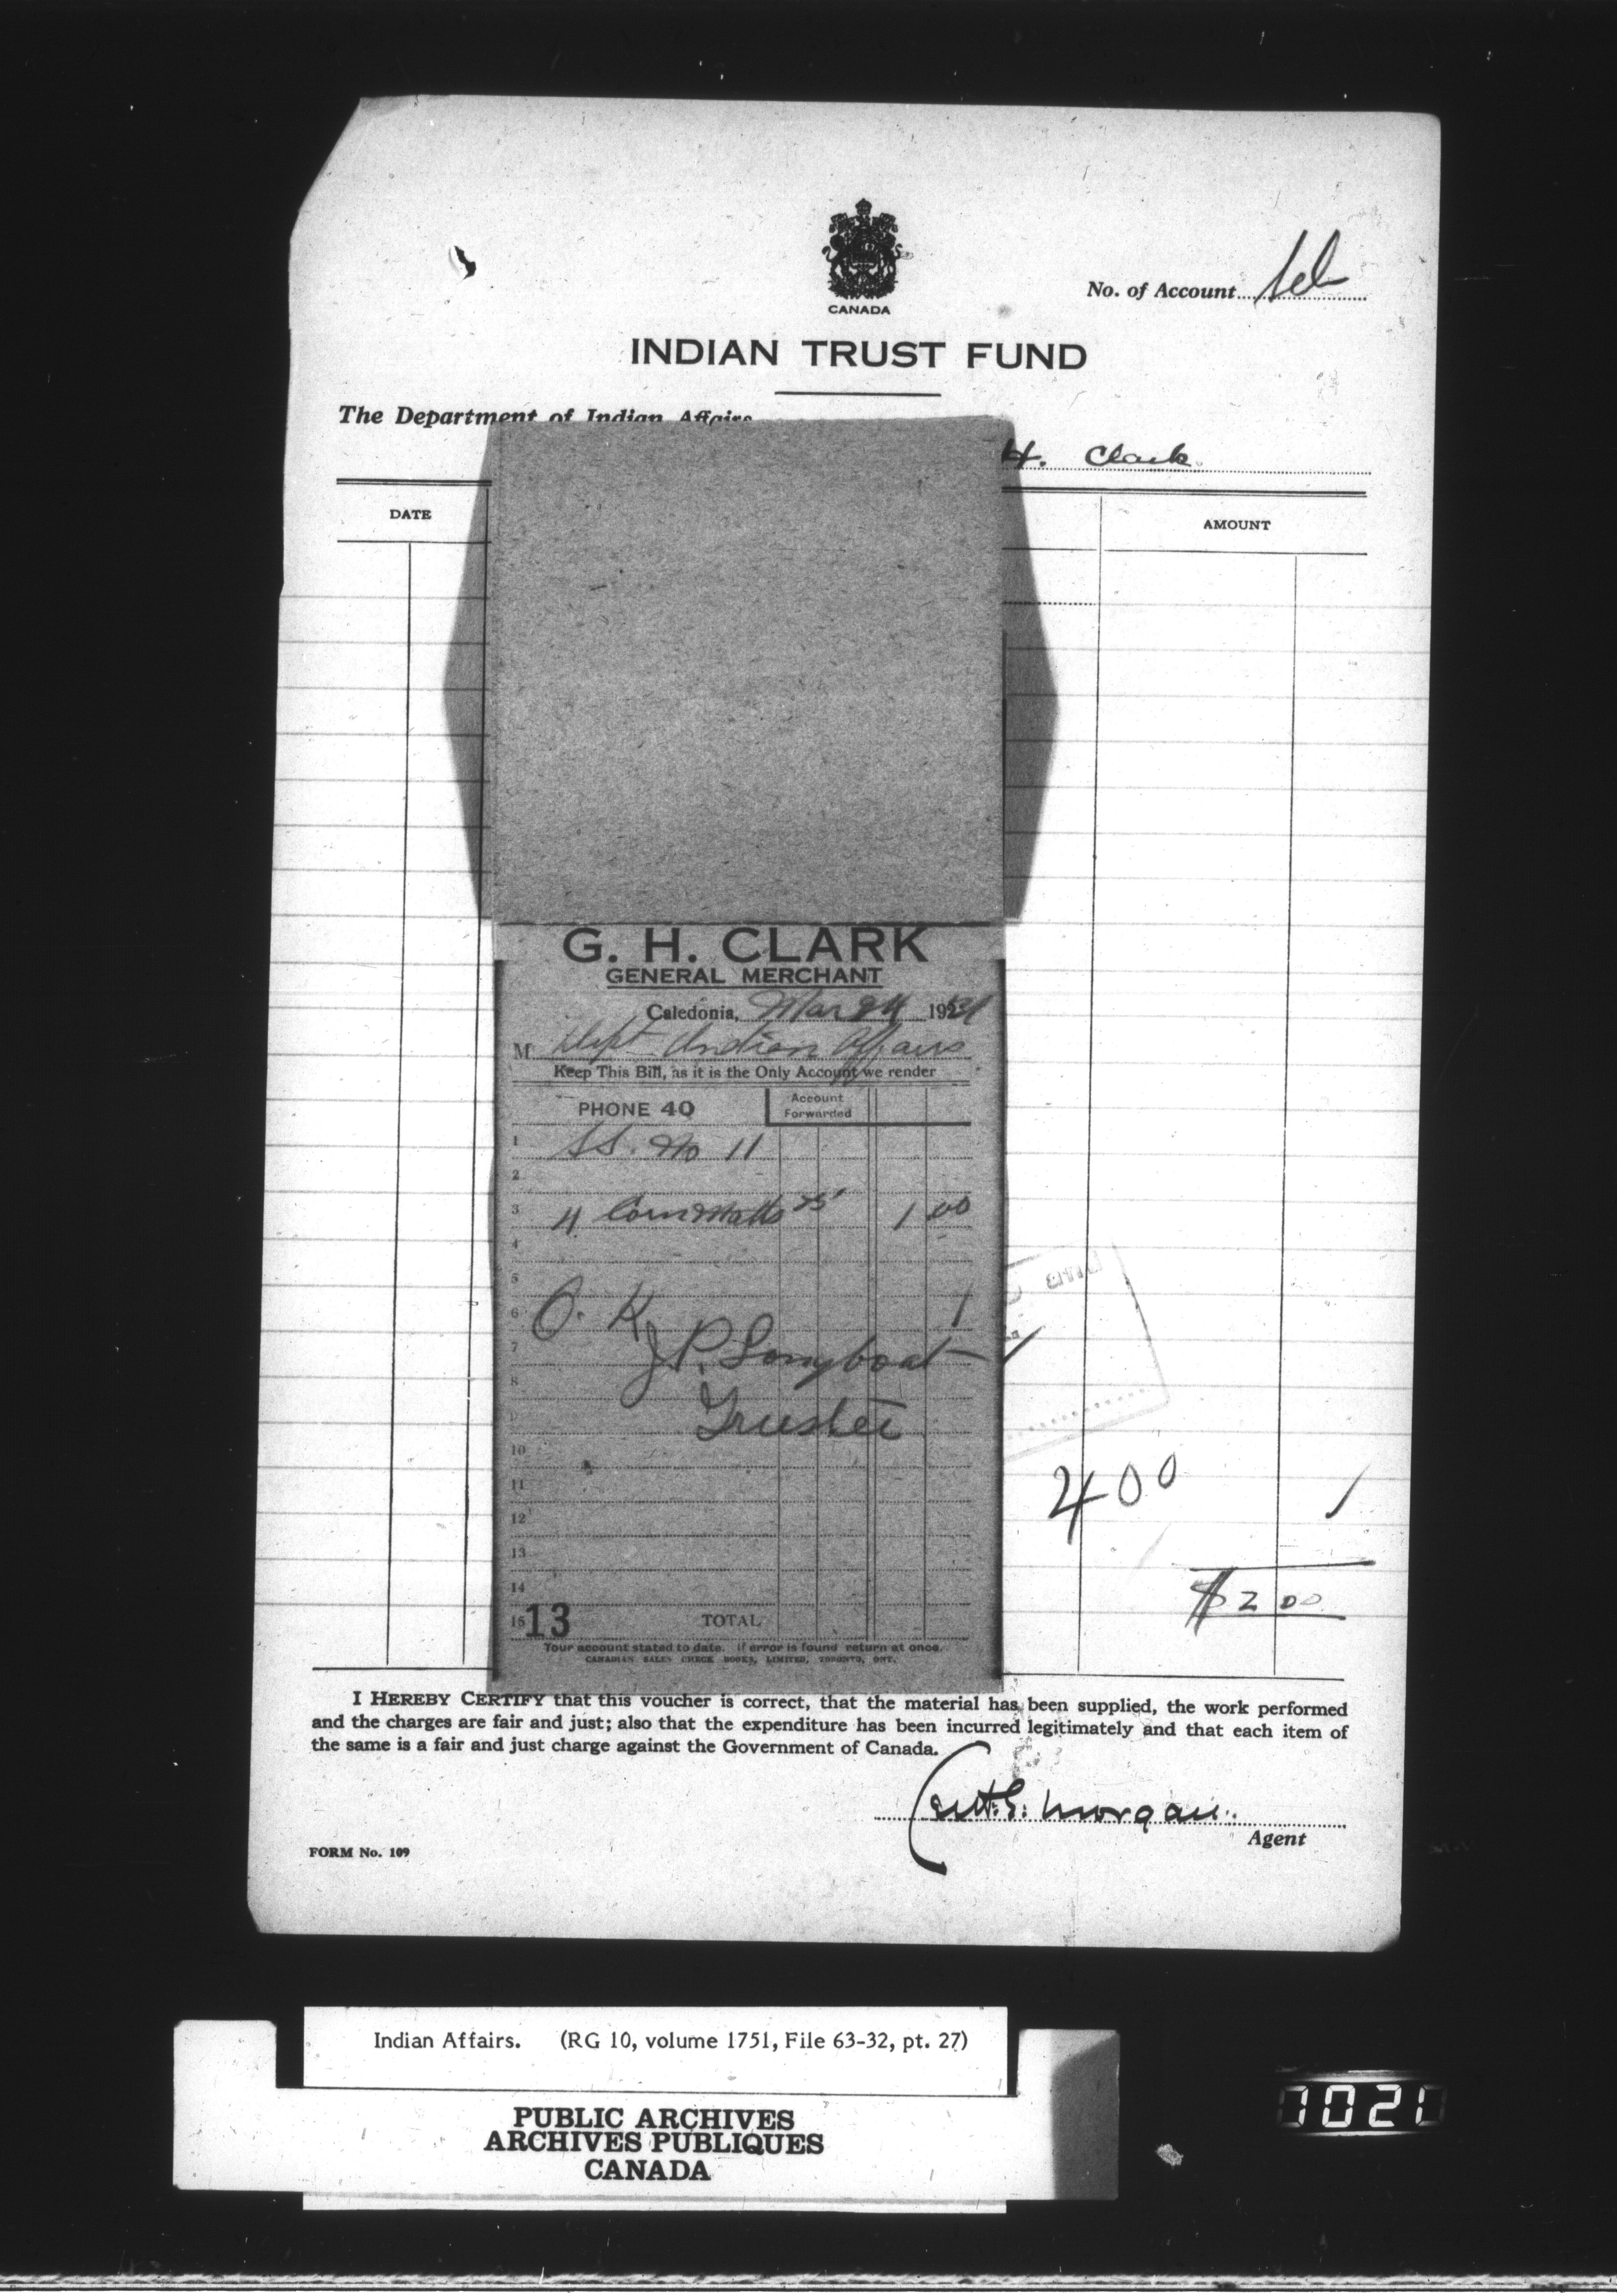 CANADA
No. of Account
INDIAN TRUST FUND
The Department of Indian Affairs
H. Clark
DATE
AMOUNT
G. H. CLARK
GENERAL MERCHANT
Caledonia, Mar 24 1931
M Dept Indian Affairs
Keep This Bill, as it is the Only Account we render
PHONE 40
Account Forwarded
1 SS. No 11
2
3 4 25 1 00
4
5
6 O. K.
7 J P. Longboat
8
9 Trustee
10
11
400
12
13
14
$2 00
15 13 TOTAL
Your account stated to date. If error is found return at once.
CANADIAN SALES CHECK BOOKS, LIMITED, TORONTO, ONT.
I HEREBY CERTIFY that this voucher is correct, that the material has been supplied, the work performed
and the charges are fair and just; also that the expenditure has been incurred legitimately and that each item of
the same is a fair and just charge against the Government of Canada.
Morgan
Agent
FORM No. 109
Indian Affairs. (RG 10, volume 1751, File 63-32, pt. 27)
PUBLIC ARCHIVES
ARCHIVES PUBLIQUES
CANADA
1021